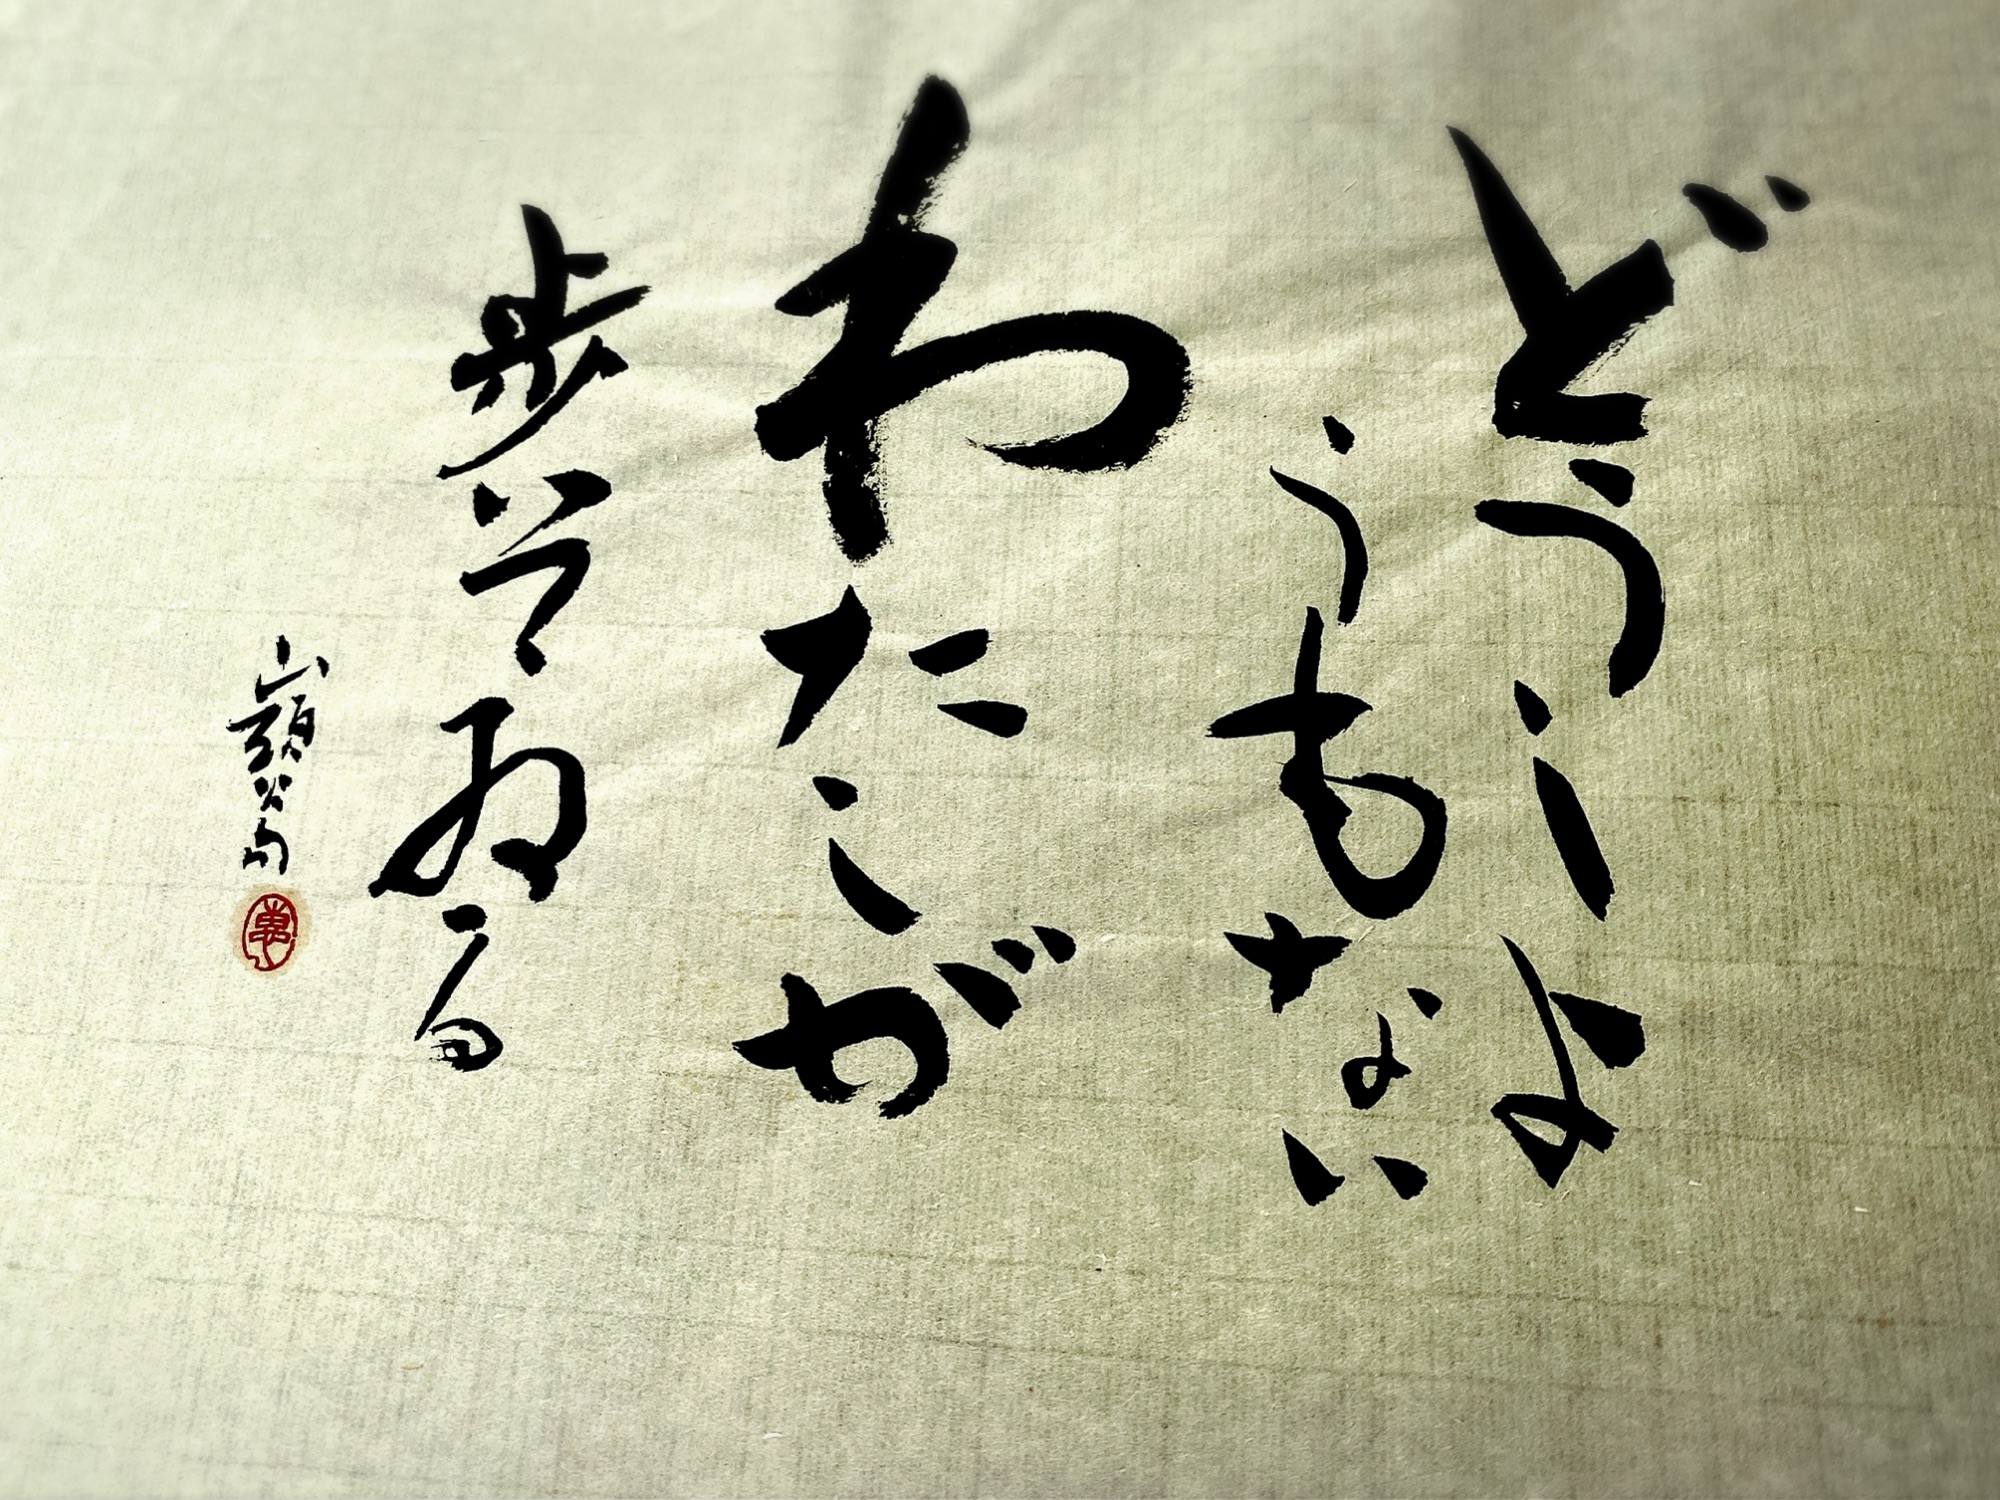 どうしよ
うもない
わたしが
歩いてゐる
山頭火句